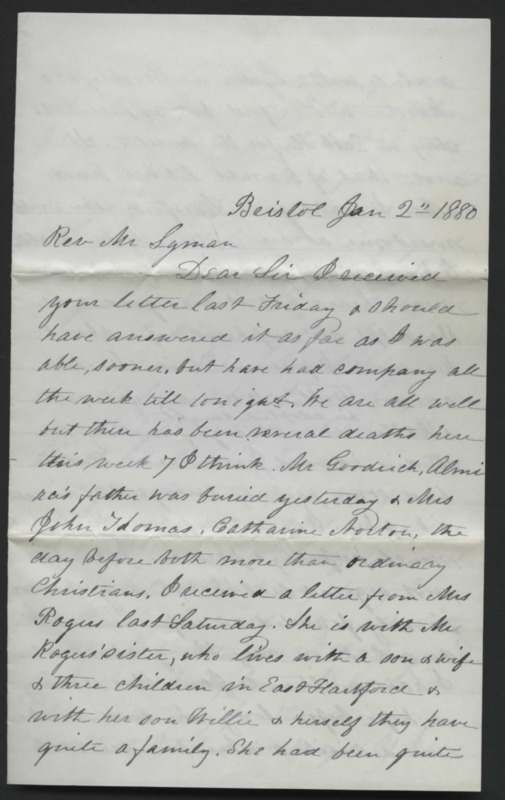 Bristol Jan 2" 1880
Rev Mr Lyman
Dear Sir I received
your letter last Friday & should
have answered it as far as I was
able, sooner, but have had company all
the week till tonight. We are all well
but there has been several deaths here
this week 7 I think. Mr Goodrich, Almi
ra's father was buried yesterday & Mrs
John Thomas, Catharine Norton, the
day before both more than ordinary
Christians. I received a letter from Mrs
Rogers last Saturday. She is with Mr
Rogers' sister, who lives with a son & wife
& three children in East Hartford &
with her son Willie & herself they have
quite a family. She had been quite